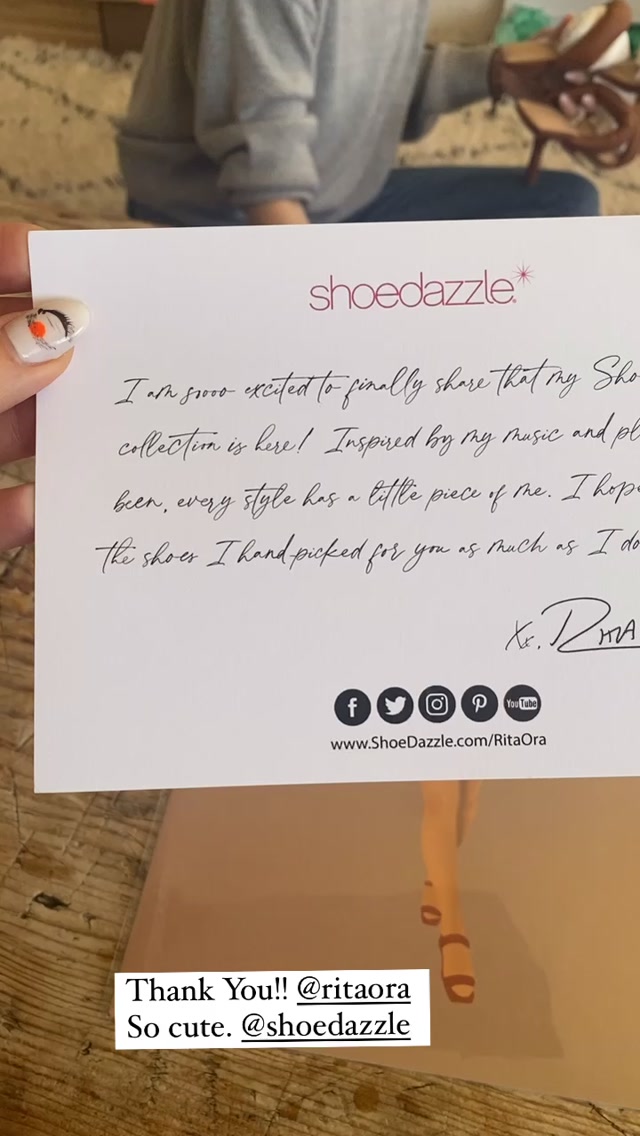 shoedazzle.
I am soooo excited to finally share that my
collection is here! Inspired by my music and
been, every style has a little piece of me. I
the shoes I hand-picked for you as much as I do
Xx, RITA
f
YouTube
www.ShoeDazzle.com/RitaOra
Thank You!! @ritaora
So cute. @shoedazzle